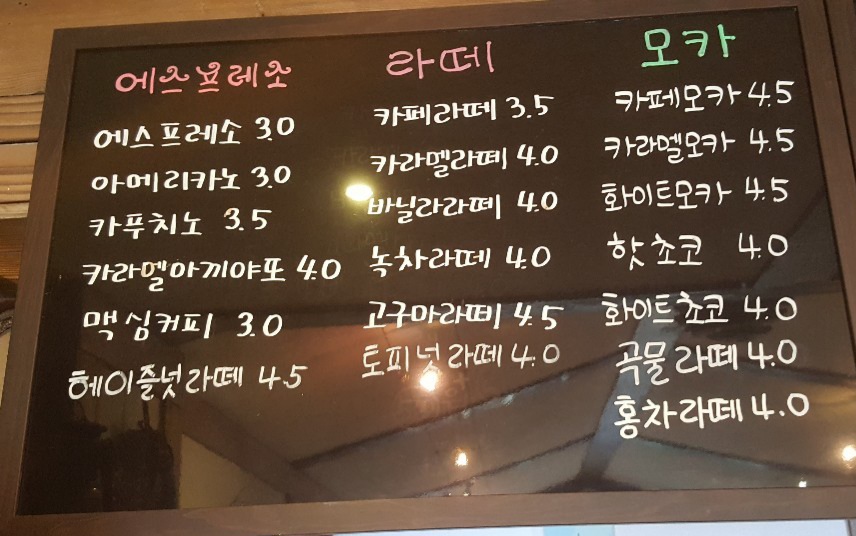 에스프레소
에스프레소 3.0
아메리카노 3.0
카푸치노 3.5
카라멜마끼야또 4.0
맥심커피 3.0
헤이즐넛라떼 4.5
라떼
카페라떼 3.5
카라멜라떼 4.0
바닐라라떼 4.0
녹차라떼 4.0
고구마라떼 4.5
토피넛라떼 4.0
모카
카페모카 4.5
카라멜모카 4.5
화이트모카 4.5
핫쵸코 4.0
화이트쵸코 4.0
곡물라떼 4.0
홍차라떼 4.0